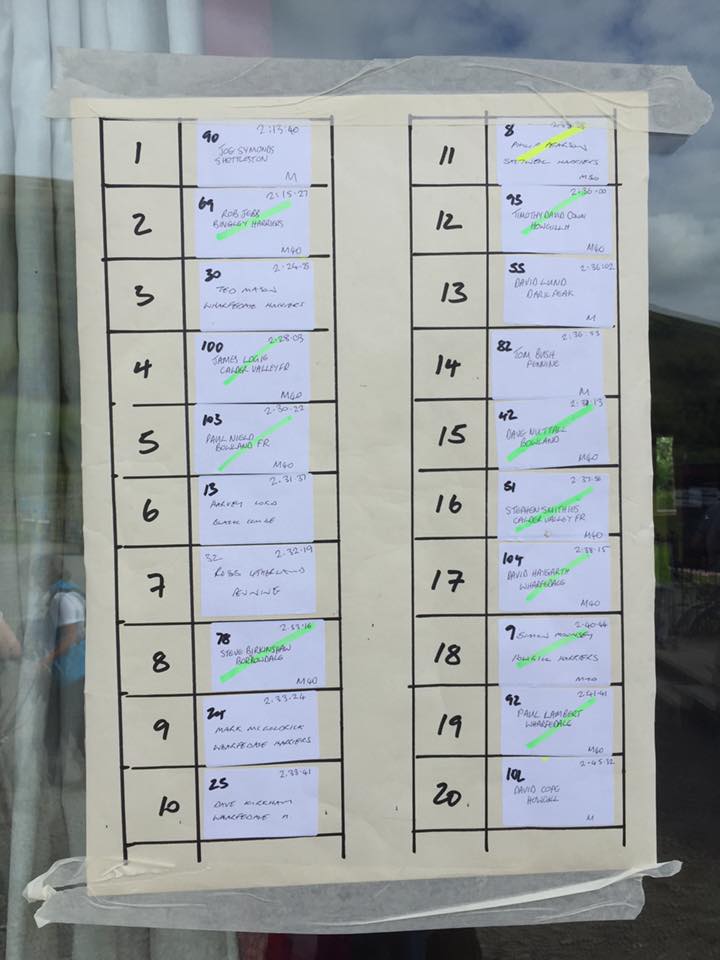 1
90 2:13:40
JOE SYMONDS
SHETTLESTON
M
2
69 2:15:27
ROB JEBB
BINGLEY HARRIERS
M40
3
30
TED MASON
WHARFEDALE HARRIERS
4
100 2:28:03
JAMES LOGIE
CALDER VALLEY FR
M40
5
103 2:30:22
PAUL NIELD
BOWLAND FR
M40
6
13 2:31:37
HARVEY LORD
7
32 2:32:19
ROSS
PENNINE
8
78 2:33:16
STEVE BIRKINSHAW
BORROWDALE
M40
9
2:33:24
MARK MCGOLDRICK
WHARFEDALE HARRIERS
10
25 2:33:41
DAVE KIRKHAM
WHARFEDALE H
11
8
PEARSON
HARRIERS
12
95 2:36:00
TIMOTHY DAVID
HOWGILL H
M40
13
55 2:36:02
DAVID LUND
DARK PEAK
M
14
82 2:36:53
TOM BUSH
PENNINE
M
15
42
DAVE NUTTALL
BOWLAND
M40
16
51
STEPHEN SMITHIES
CALDER VALLEY FR
M40
17
104 2:38:15
DAVID HAYGARTH
WHARFEDALE
M40
18
9 2:40:44
SIMON
HARRIERS
M40
19
92 2:41:41
PAUL LAMBERT
WHARFEDALE
M40
20
102 2:45:32
DAVID COPE
HOWGILL
M